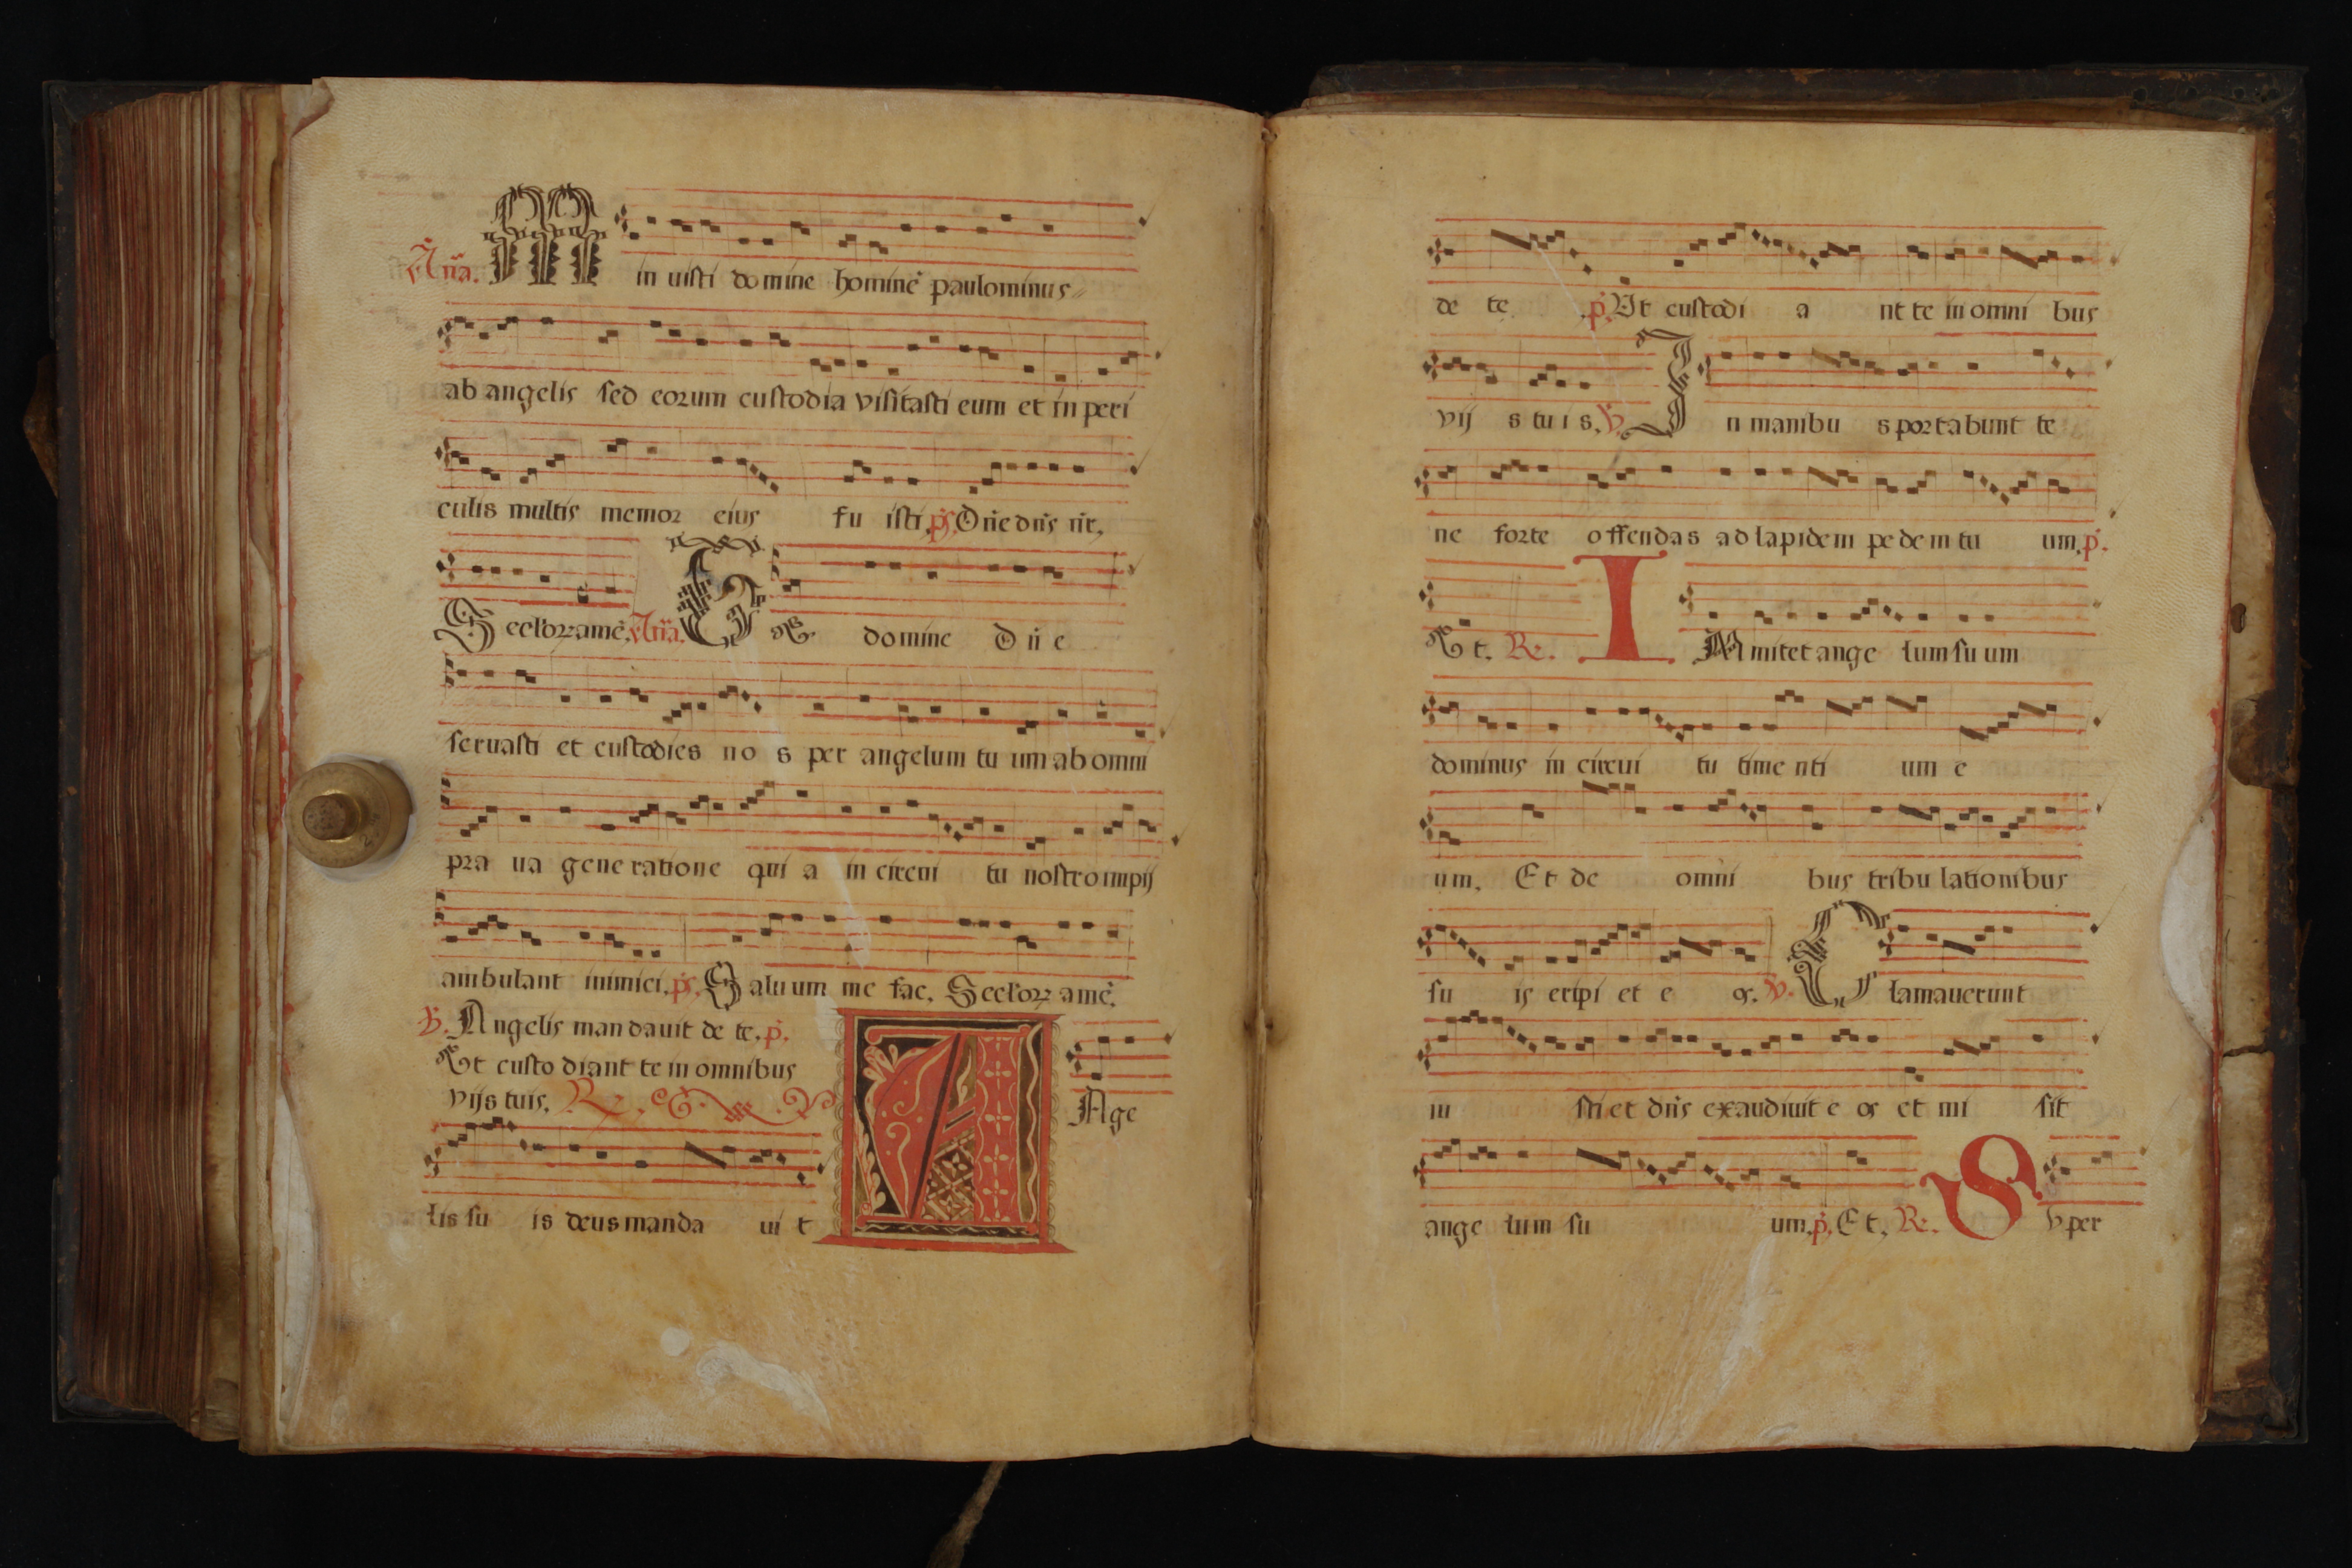 Aña. M in uisti domine hominē paulominus
ab angelis sed eorum custodia visitasti eum et in peri
culis multis memor eius fu isti, ps. Dñe dñs nr̄.
Seclor. amē. Aña. T v. domine Dñe
seruasti et custodies no s per angelum tu um ab omni
pra ua gene ratione qui a in circui tu nostro impij
ambulant inimici, ps. Saluum me fac. Seclor. amē.
v. Angelis mandauit de te. p.
Vt custodiant te in omnibus
vijs tuis. R.
A nge
lis su is deus manda ui t
de te. p. Vt custodi a nt te in omni bus
vij s tu i s. v. I n manibu s portabunt te
ne forte offendas ad lapidem pe dem tu um. p.
V t. R. I Mmitet ange lum su um
dominus in circui tu time nti um e
um. Et de omni bus tribu lationibus
su is eripi et e os. v. C lamauerunt
iu sti et dñs exaudiuit e os et mi sit
ange lum su um. p. Et. R. S vper